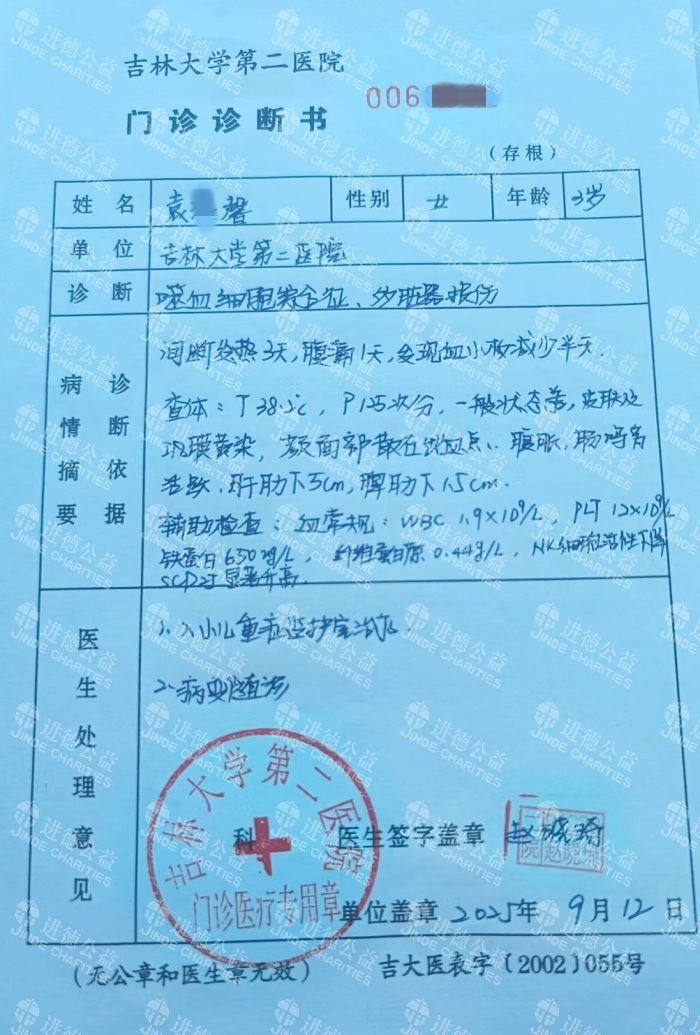 吉林大学第二医院
006
门诊诊断书
(存根)
姓名 袁 馨 性别 女 年龄 3岁
单位 吉林大学第二医院
诊断 噬血细胞综合征、多脏器损伤
病情摘要 诊断依据
间断发热3天,腹痛1天,发现血小板减少半天.
查体:T 38.2℃, P 125次/分,一般状态差,皮肤及
巩膜黄染,颜面部散在出血点、腹胀,肠鸣音
活跃,肝肋下3cm,脾肋下1.5cm.
辅助检查:血常规:WBC 1.9×10⁹/L, PLT 12×10⁹/L
铁蛋白 650 ng/L, 纤维蛋白原 0.44g/L, NK细胞活性下降
SCD25显著升高.
医生处理意见
1.入小儿重症监护室治疗.
2.病变随诊
吉林大学第二医院
门诊医疗专用章
科 医生签字盖章 赵晓琦
单位盖章 2025年 9月12日
(无公章和医生章无效) 吉大医表字〔2002〕055号
进德公益
JINDE CHARITIES